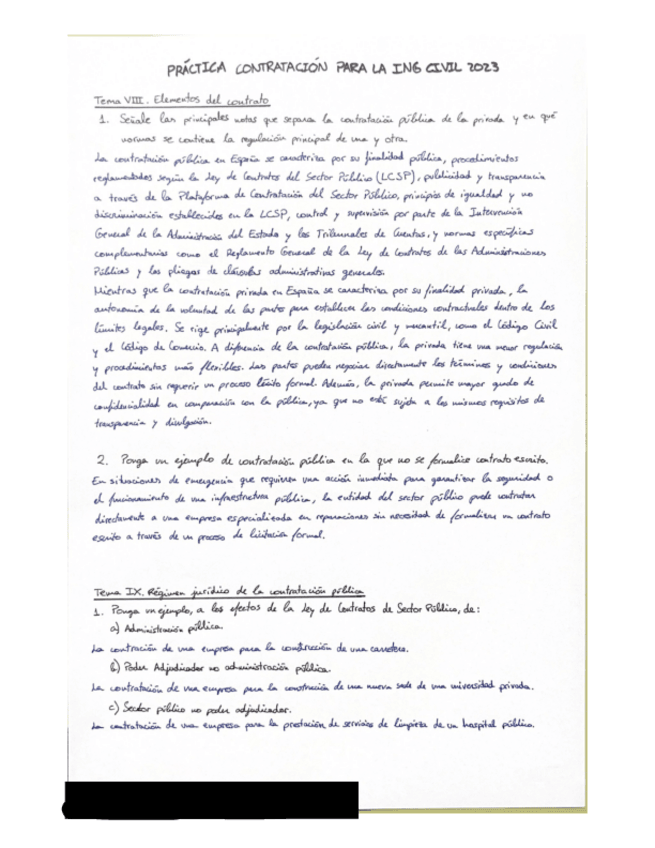 PRÁCTICA CONTRATACIÓN PARA LA ING CIVIL 2023
Tema VIII. Elementos del contrato
1. Señale las principales notas que separa la contratación pública de la privada y en qué
normas se contiene la regulación principal de una y otra.
La contratación pública en España se caracteriza por su finalidad pública, procedimientos
reglamentados según la Ley de Contratos del Sector Público (LCSP), publicidad y transparencia
a través de la Plataforma de Contratación del Sector Público, principios de igualdad y no
discriminación establecidos en la LCSP, control y supervisión por parte de la Intervención
General de la Administración del Estado y los Tribunales de Cuentas, y normas específicas
complementarias como el Reglamento General de la Ley de Contratos de las Administraciones
Públicas y los pliegos de cláusulas administrativas generales.
Mientras que la contratación privada en España se caracteriza por su finalidad privada, la
autonomía de la voluntad de las partes para establecer las condiciones contractuales dentro de los
límites legales. Se rige principalmente por la legislación civil y mercantil, como el Código Civil
y el Código de Comercio. A diferencia de la contratación pública, la privada tiene una menor regulación
y procedimientos más flexibles. Las partes pueden negociar directamente los términos y condiciones
del contrato sin requerir un proceso lícito formal. Además, la privada permite mayor grado de
confidencialidad en comparación con la pública, ya que no está sujeta a los mismos requisitos de
transparencia y divulgación.
2. Ponga un ejemplo de contratación pública en la que no se formalice contrato escrito.
En situaciones de emergencia que requieren una acción inmediata para garantizar la seguridad o
el funcionamiento de una infraestructura pública, la entidad del sector público puede contratar
directamente a una empresa especializada en reparaciones sin necesidad de formalizar un contrato
escrito a través de un proceso de licitación formal.
Tema IX. Régimen jurídico de la contratación pública
1. Ponga un ejemplo, a los efectos de la Ley de Contratos de Sector Público, de:
a) Administración pública.
La contración de una empresa para la construcción de una carretera.
b) Poder Adjudicador no administración pública.
La contratación de una empresa para la construcción de una nueva sede de una universidad privada.
c) Sector público no poder adjudicador.
La contratación de una empresa para la prestación de servicios de limpieza de un hospital público.